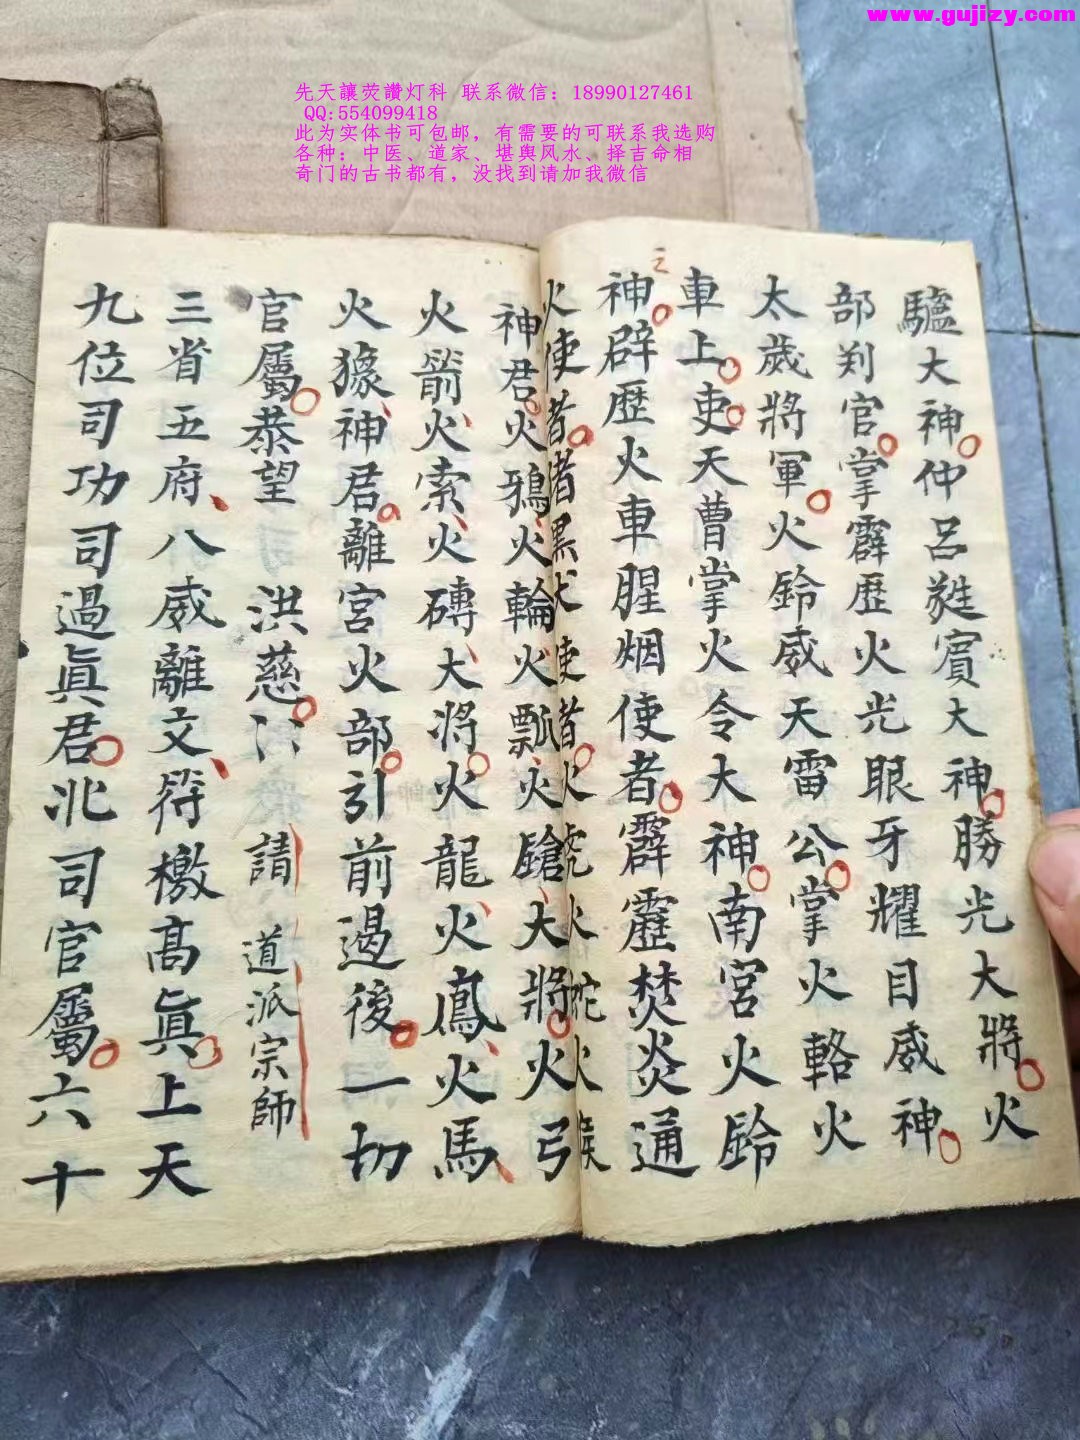 www.gujizy.com
先天讓荧讚灯科 联系微信：18990127461
QQ:554099418
此为实体书可包邮，有需要的可联系我选购
各种：中医、道家、堪舆风水、择吉命相
奇门的古书都有，没找到请加我微信
驢大神仲呂蕤賓大神勝光大將火
部判官掌霹歷火光眼牙耀目威神
太歲將軍火鈴威天雷公掌火輅火
車上吏天曹掌火令大神南宮火鈴
神辟歷火車腥烟使者霹靂焚炎通
火使者者黑犬使者火虎火蛇火猴
神君火鴉火輪火瓢火鎗大將火弓
火箭火索火磚大將火龍火鳳火馬
火猿神君離宮火部引前遏後一切
官屬恭望 洪慈 請 道派宗師
三省五府八威離文符檄高眞上天
九位司功司過眞君北司官屬六十